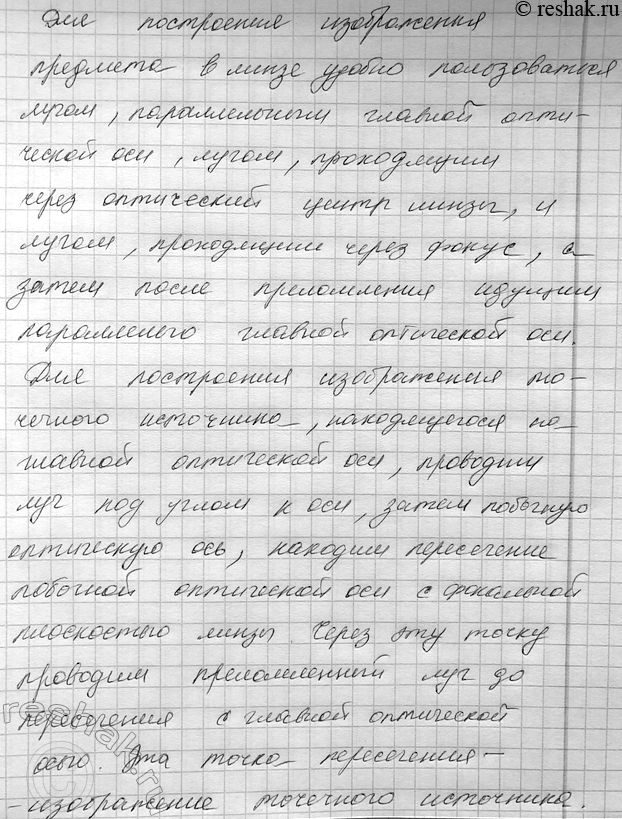 © reshak.ru
Для построения изображения
предмета в линзе удобно пользоваться
лучом, параллельным главной опти-
ческой оси, лучом, проходящим
через оптический центр линзы, и
лучом, проходящим через фокус, а
затем после преломления идущим
параллельно главной оптической оси.
Для построения изображения то-
чечного источника, находящегося на
главной оптической оси, проводим
луч под углом к оси, затем побочную
оптическую ось, находим пересечение
побочной оптической оси с фокальной
плоскостью линзы. Через эту точку
проводим преломленный луч до
пересечения с главной оптической
осью. Эта точка пересечения -
- изображение точечного источника.
reshak.ru